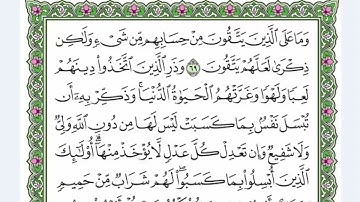 وَمَا عَلَى ٱلَّذِينَ يَتَّقُونَ مِنْ حِسَابِهِم مِّن شَىْءٍ وَلَٰكِن
ذِكْرَىٰ لَعَلَّهُمْ يَتَّقُونَ ٦٩ وَذَرِ ٱلَّذِينَ ٱتَّخَذُوا۟ دِينَهُمْ
لَعِبًا وَلَهْوًا وَغَرَّتْهُمُ ٱلْحَيَوٰةُ ٱلدُّنْيَا ۚ وَذَكِّرْ بِهِۦٓ أَن
تُبْسَلَ نَفْسٌۢ بِمَا كَسَبَتْ لَيْسَ لَهَا مِن دُونِ ٱللَّهِ وَلِىٌّ
وَلَا شَفِيعٌ وَإِن تَعْدِلْ كُلَّ عَدْلٍ لَّا يُؤْخَذْ مِنْهَآ ۗ أُو۟لَٰٓئِكَ
ٱلَّذِينَ أُبْسِلُوا۟ بِمَا كَسَبُوا۟ ۖ لَهُمْ شَرَابٌ مِّنْ حَمِيمٍ